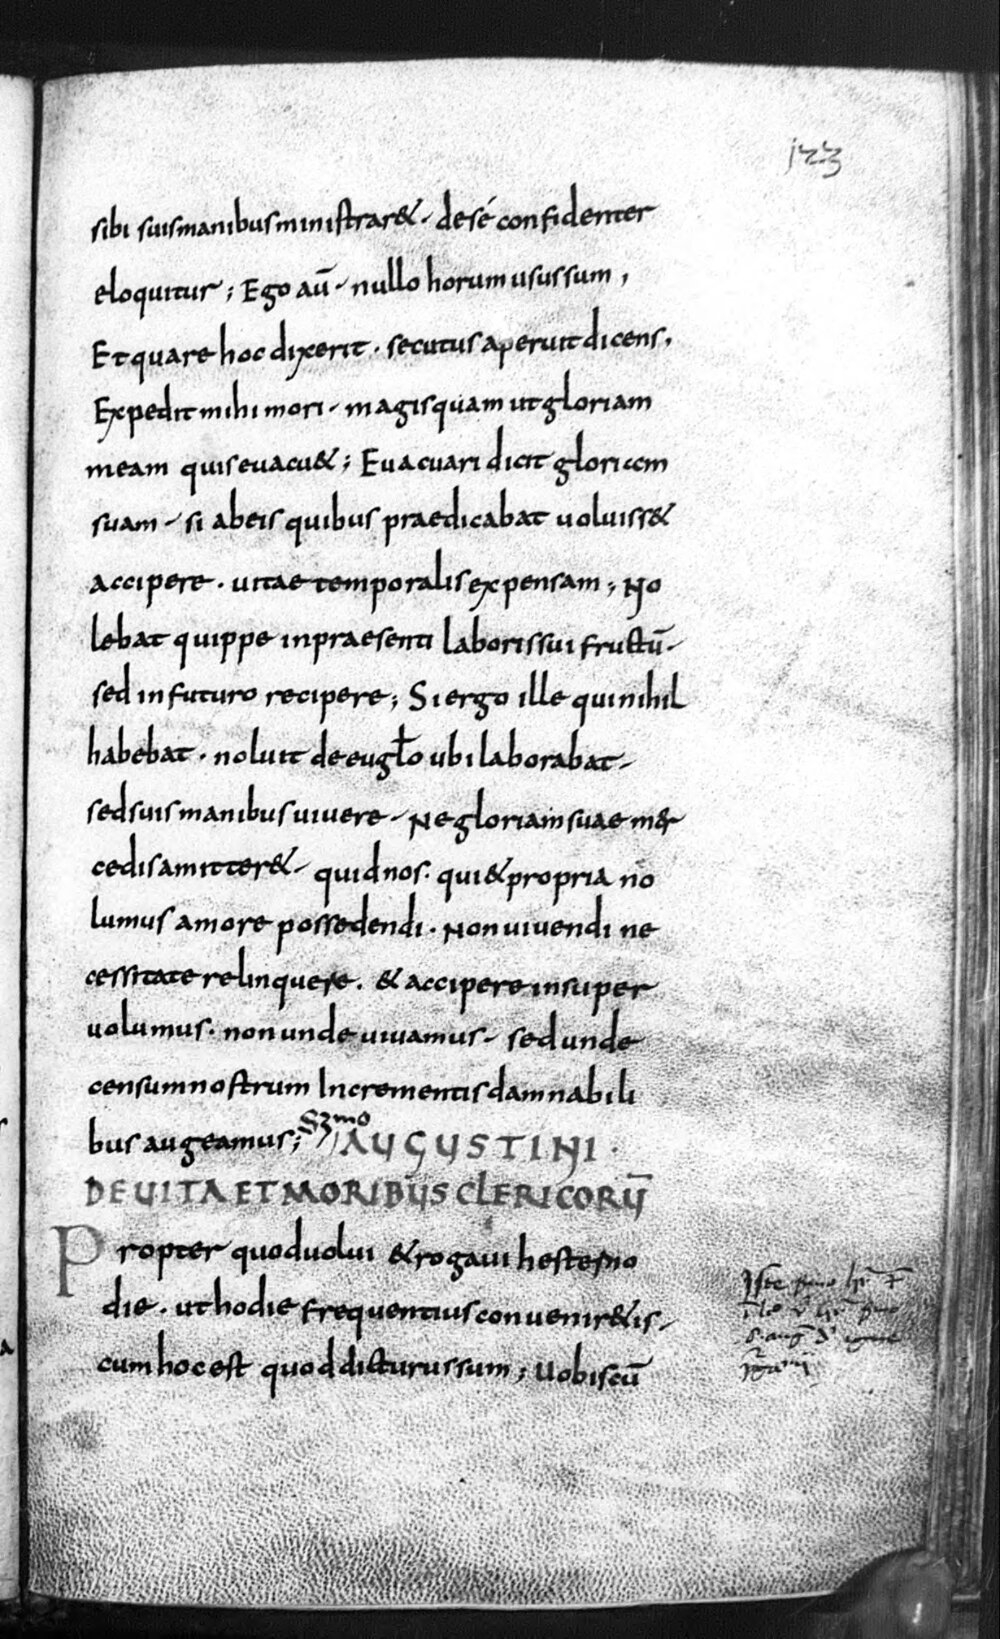 123
sibi suis manibus ministrar& · de sé confidenter
eloquitur ; Ego aū · nullo horum usus sum ,
Et quare hoc dixerit · secutus aperuit dicens ,
Expedit mihi mori · magis quam ut gloriam
meam quis euacu& ; Euacuari dicit gloriam
suam · si ab eis quibus praedicabat uoluiss&
accipere · uitae temporalis expensam ; No
lebat quippe in praesenti laboris sui fructū ·
sed in futuro recipere ; Si ergo ille qui nihil
habebat · noluit de eugł̄o ubi laborabat ·
sed suis manibus uiuere · Ne gloriam suae m&r
cedis amitter& · quid nos · qui & propria no
lumus amore possedendi · Non uiuendi ne
cessitate relinquere · & accipere insuper
uolumus · non unde uiuamus · sed unde
censum nostrum Incrementis damnabili
bus augeamus ; AUGUSTINI ·
DE UITA ET MORIBUS CLERICORŪ
Propter quod uolui & rogaui hesterno
die · ut hodie frequentius conuenir&is ·
cum hoc est quod dicturus sum ; Uobiscū